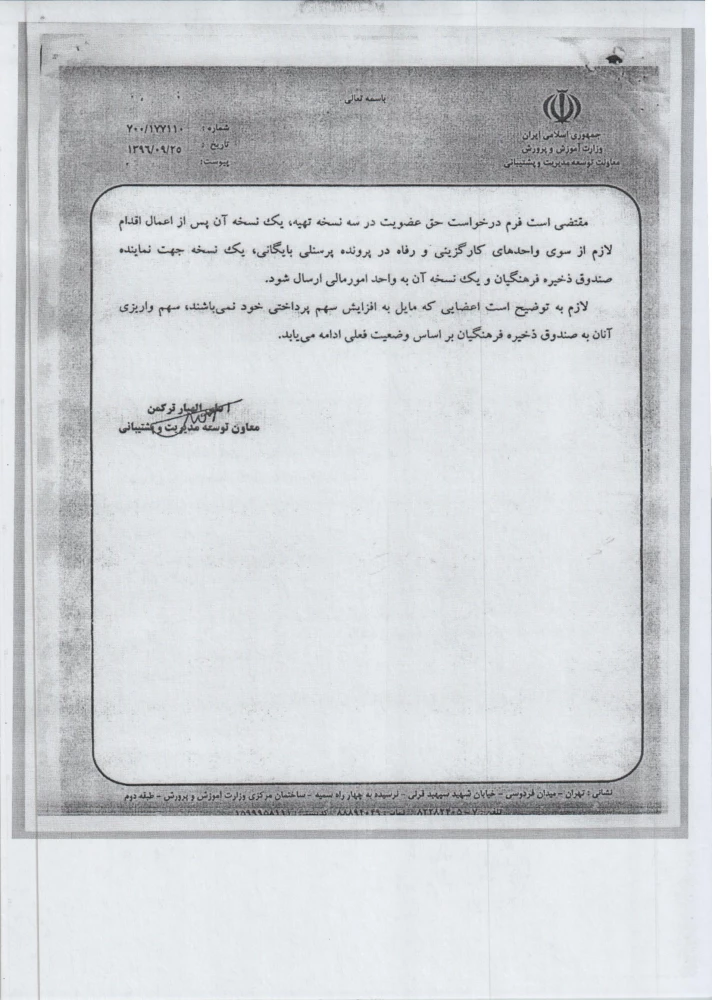 باسمه تعالی
جمهوری اسلامی ایران
وزارت آموزش و پرورش
معاونت توسعه مدیریت و پشتیبانی
شماره: ۷۰۰/۱۷۷۱۱۰
تاریخ: ۱۳۹۶/۰۹/۲۵
پیوست:
مقتضی است فرم درخواست حق عضویت در سه نسخه تهیه، یک نسخه آن پس از اعمال اقدام
لازم از سوی واحدهای کارگزینی و رفاه در پرونده پرسنلی بایگانی، یک نسخه جهت نماینده
صندوق ذخیره فرهنگیان و یک نسخه آن به واحد امورمالی ارسال شود.
لازم به توضیح است اعضایی که مایل به افزایش سهم پرداختی خود نمی‌باشند، سهم واریزی
آنان به صندوق ذخیره فرهنگیان بر اساس وضعیت فعلی ادامه می‌یابد.
الهیار ترکمن
معاون توسعه مدیریت و پشتیبانی
نشانی: تهران - میدان فردوسی - خیابان شهید سپهبد قرنی - نرسیده به چهار راه سمیه - ساختمان مرکزی وزارت آموزش و پرورش - طبقه دوم